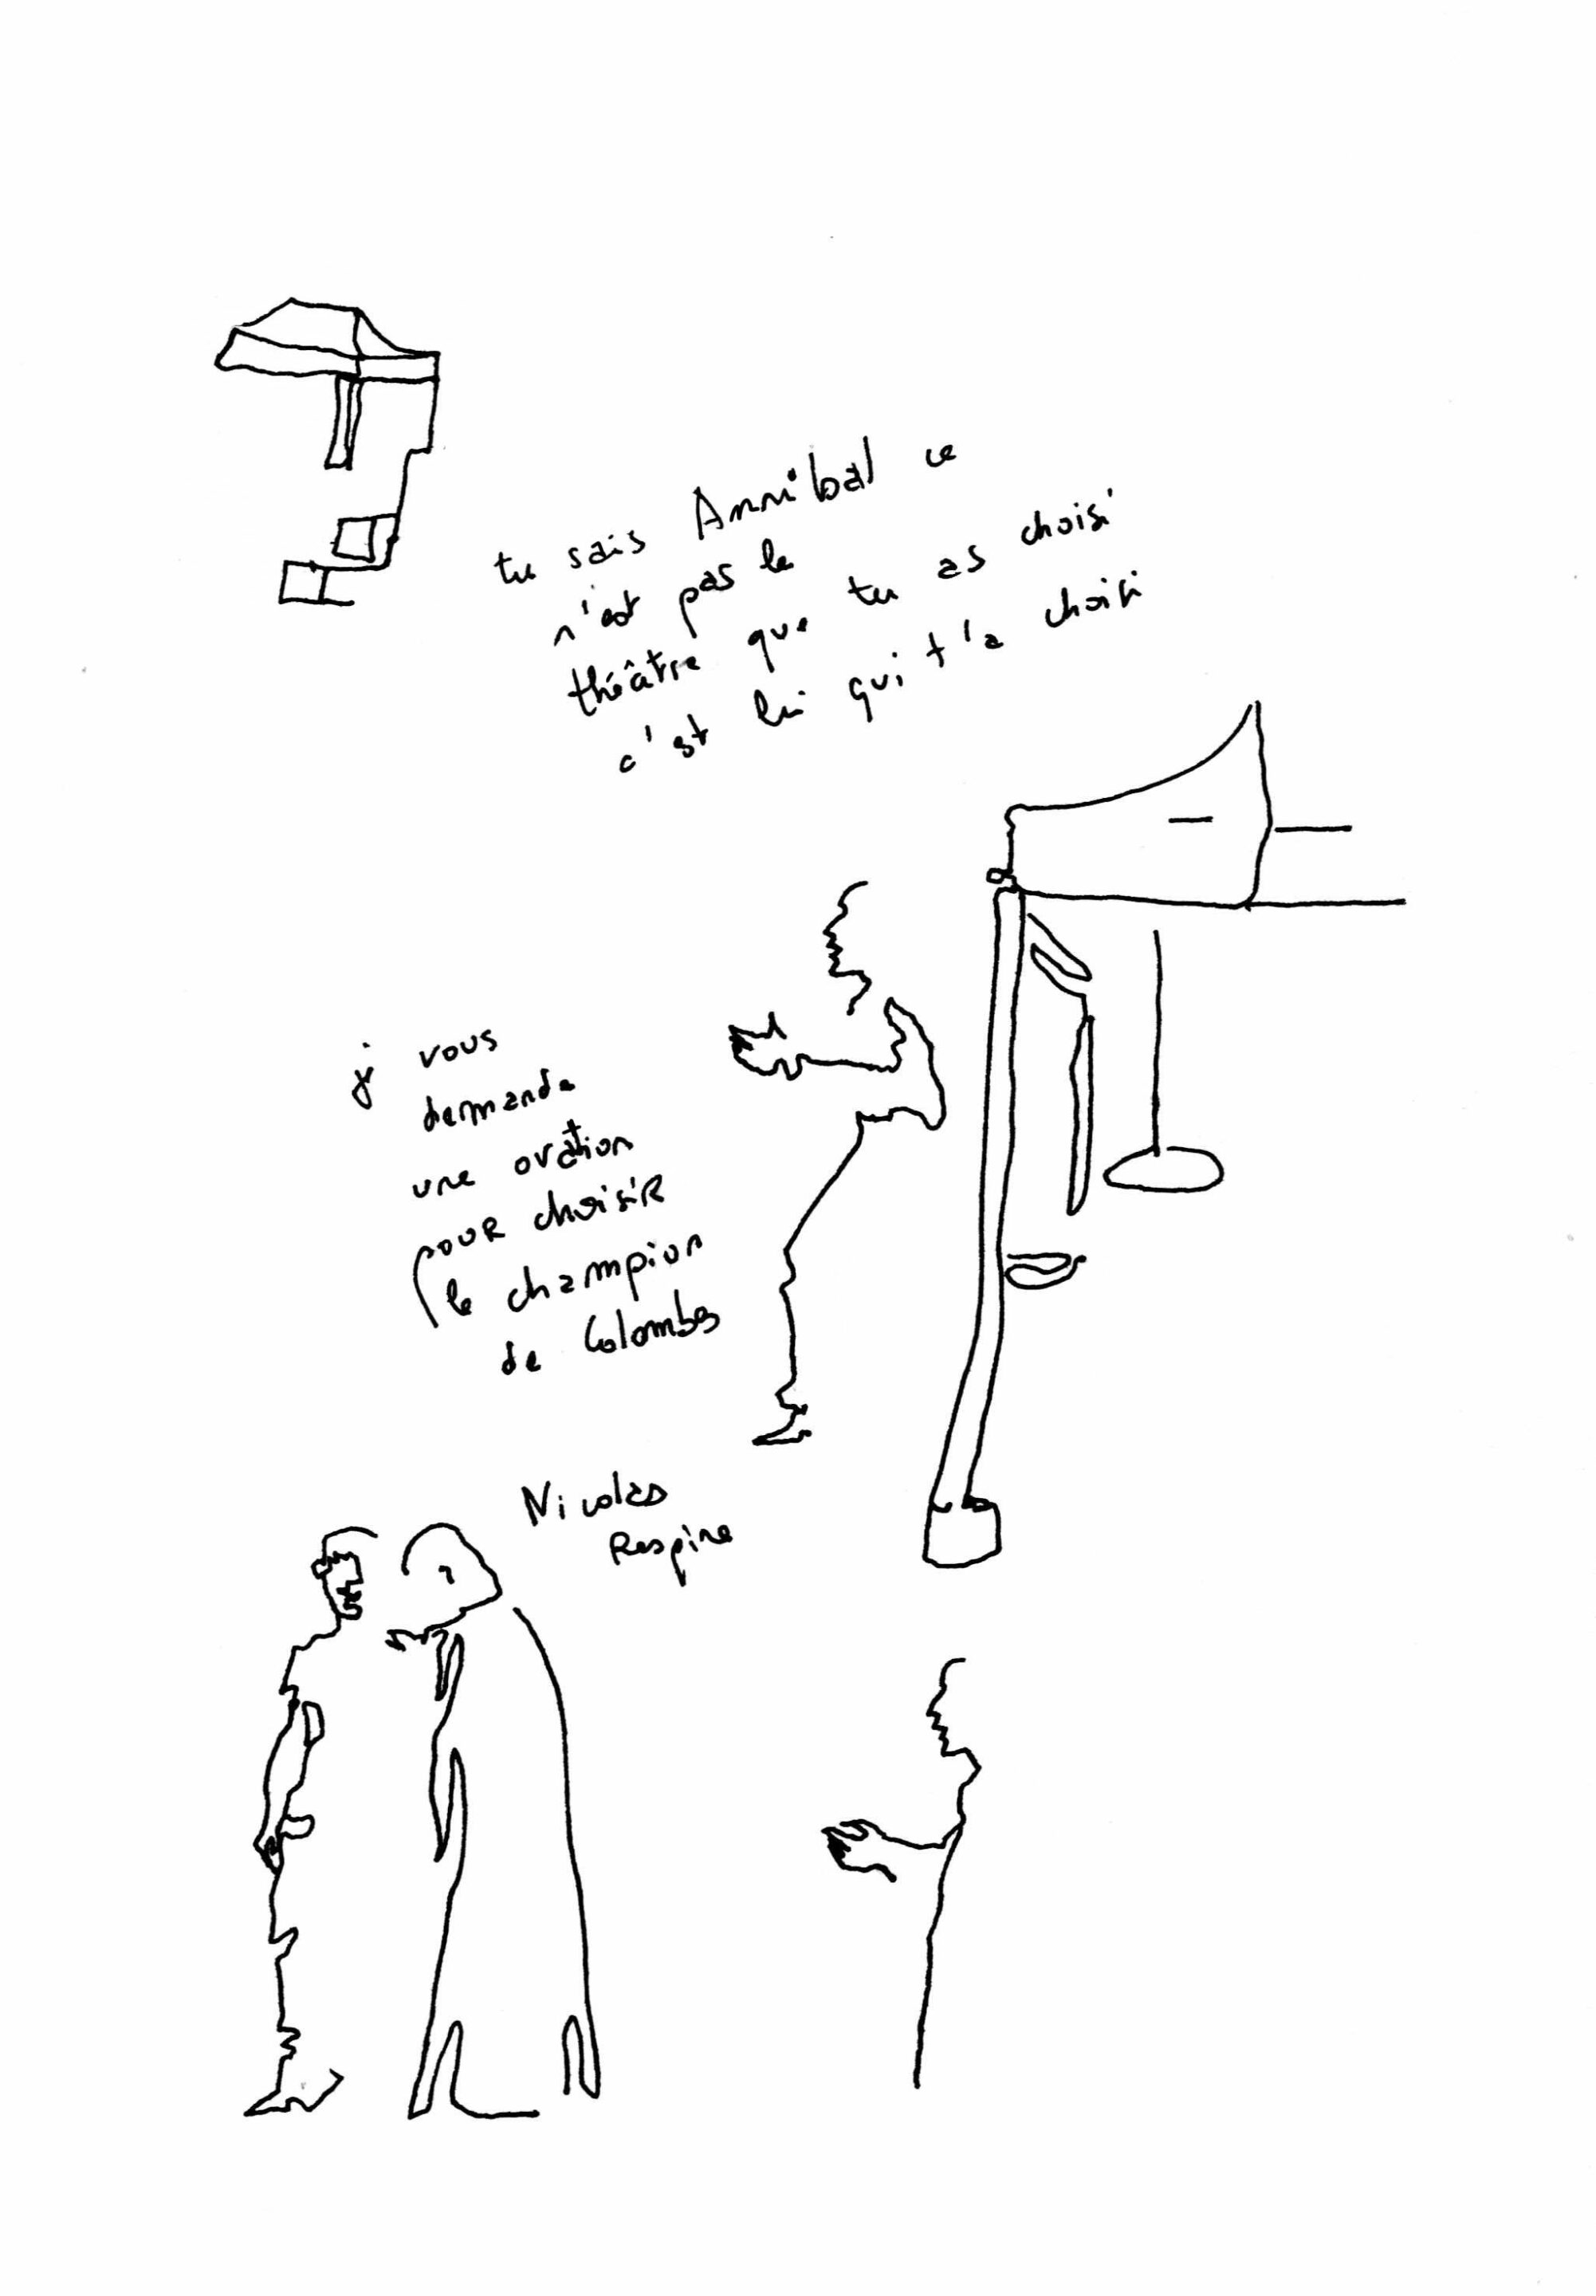 tu sais Annibal ce
n'est pas le
théâtre que tu as choisi
c'est lui qui t'a choisi
j vous
demande
une ovation
pour choisir
le champion
de Colombes
Nicolas
Respine